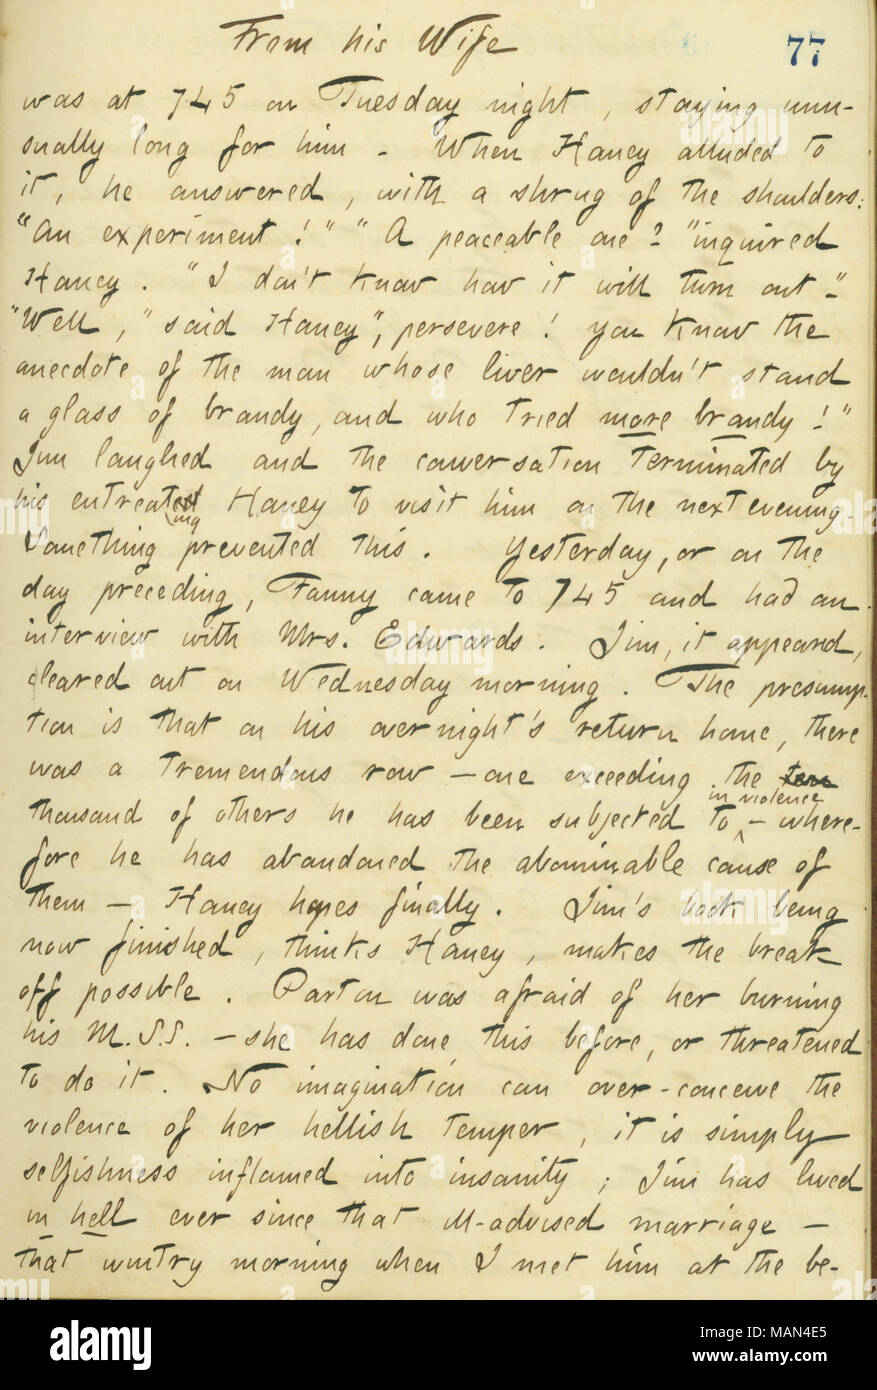 From his Wife
77
was at 745 on Tuesday night, staying unu-
sually long for him. When Haney alluded to
it, he answered, with a shrug of the shoulders:
"An experiment!" "A peaceable one?" inquired
Haney. "I don't know how it will turn out."
"Well," said Haney", persevere! you know the
anecdote of the man whose liver wouldn't stand
a glass of brandy, and who tried more brandy!"
Jim laughed and the conversation terminated by
his entreating Haney to visit him on the next evening.
Something prevented this. Yesterday, or on the
day preceding, Fanny came to 745 and had an
interview with Mrs. Edwards. Jim, it appeared,
cleared out on Wednesday morning. The presump-
tion is that on his overnight's return home, there
was a tremendous row — one exceeding the ten
thousand of others he has been subjected to in violence — where-
fore he has abandoned the abominable cause of
them — Haney hopes finally. Jim's book being
now finished, thinks Haney, makes the break
off possible. Parton was afraid of her burning
his M.S.S. — she has done this before, or threatened
to do it. No imagination can over-conceive the
violence of her hellish temper, it is simply
selfishness inflamed into insanity; Jim has lived
in hell ever since that ill-advised marriage —
that wintry morning when I met him at the be-
alamy
Image ID: MAN4E5
www.alamy.com